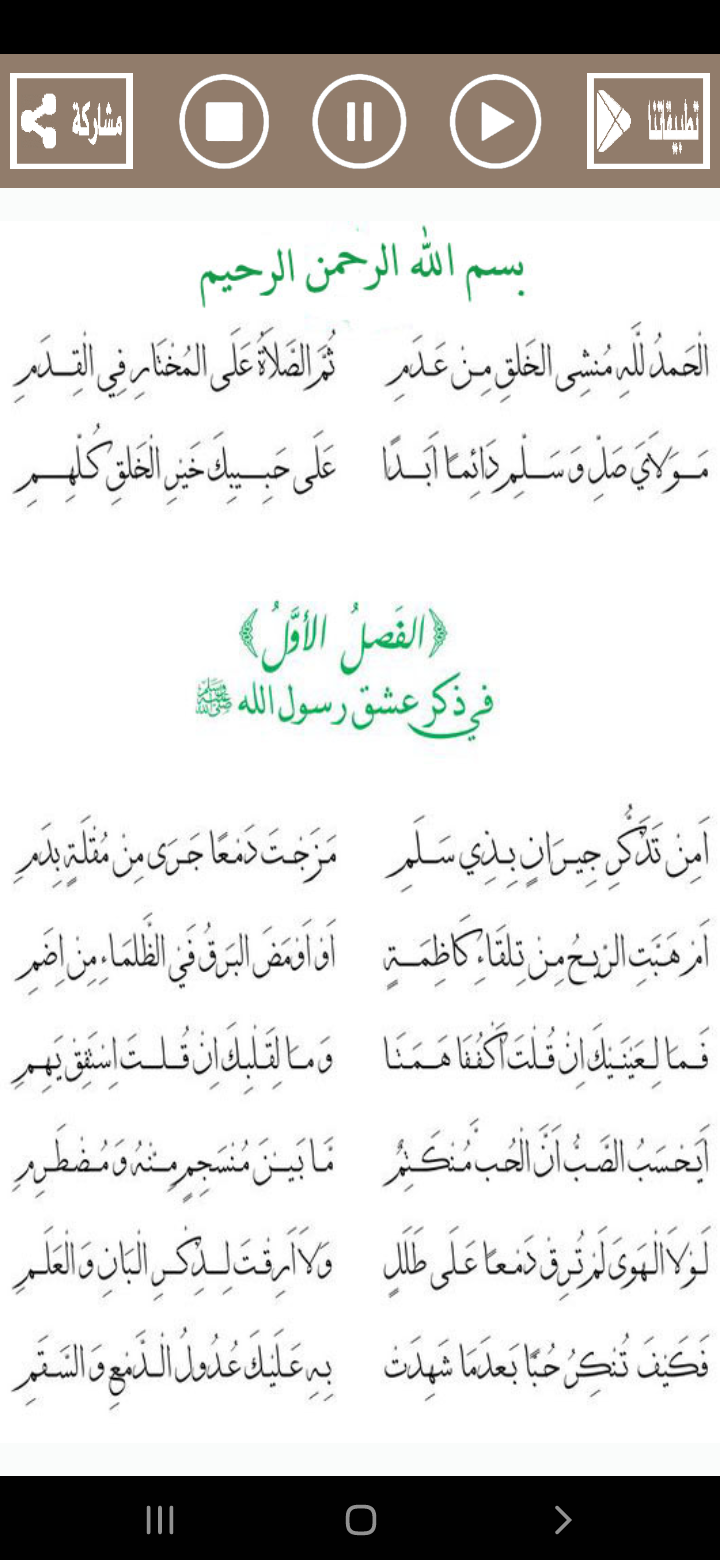 مشاركة تطبيقاتنا
بسم الله الرحمن الرحيم
الْحَمدُ لِلَّهِ مُنشِى الخَلقِ مِنْ عَدَمِ ثُمَّ الصَّلاَةُ عَلَى المُخْتَارِ فِي الْقِدَمِ
مَوَلاَيَ صَلِّ وَسَلِّم دَائِمًا اَبَدًا عَلَى حَبِيبِكَ خَيْرِ الْخَلقِ كُلِّهِمِ
﴿الفَصلُ الأوَّلُ﴾
في ذكر عشق رسول الله ﷺ
اَمِنْ تَذَكُّرِ جِيرَانٍ بِذِي سَلَمِ مَزَجْتَ دَمْعًا جَرَى مِنْ مُقْلَةٍ بِدَمِ
اَمْ هَبَّتِ الرِّيحُ مِنْ تِلقَاءِ كَاظِمَةٍ اَوْ اَوْمَضَ البَرقُ فَيِ الظَّلمَاءِ مِنْ اِضَمِ
فَمَا لِعَيْنَيْكَ اِنْ قُلْتَ اكْفُفَا هَمَتَا وَمَا لِقَلْبِكَ اِنْ قُلتَ اِسْتَفِقْ يَهِمِ
اَيَحْسَبُ الصَّبُّ اَنَّ الْحُبَّ مُنْكَتِمٌ مَّا بَيْنَ مُنْسَجِمٍ مِنْهُ وَمُضْطَرِمِ
لَوْلاَ الْهَوَىَ لَمْ تُرِقْ دَمْعًا عَلَى طَلَلٍ وَلاَ اَرِقْتَ لِذِكْرِ الْبَانِ وَالْعَلَمِ
فَكَيْفَ تُنْكِرُ حُبًّا بَعدَمَا شَهِدَتْ بِهِ عَلَيْكَ عُدُولُ الْدَّمْعِ وَالسَّقَمِ